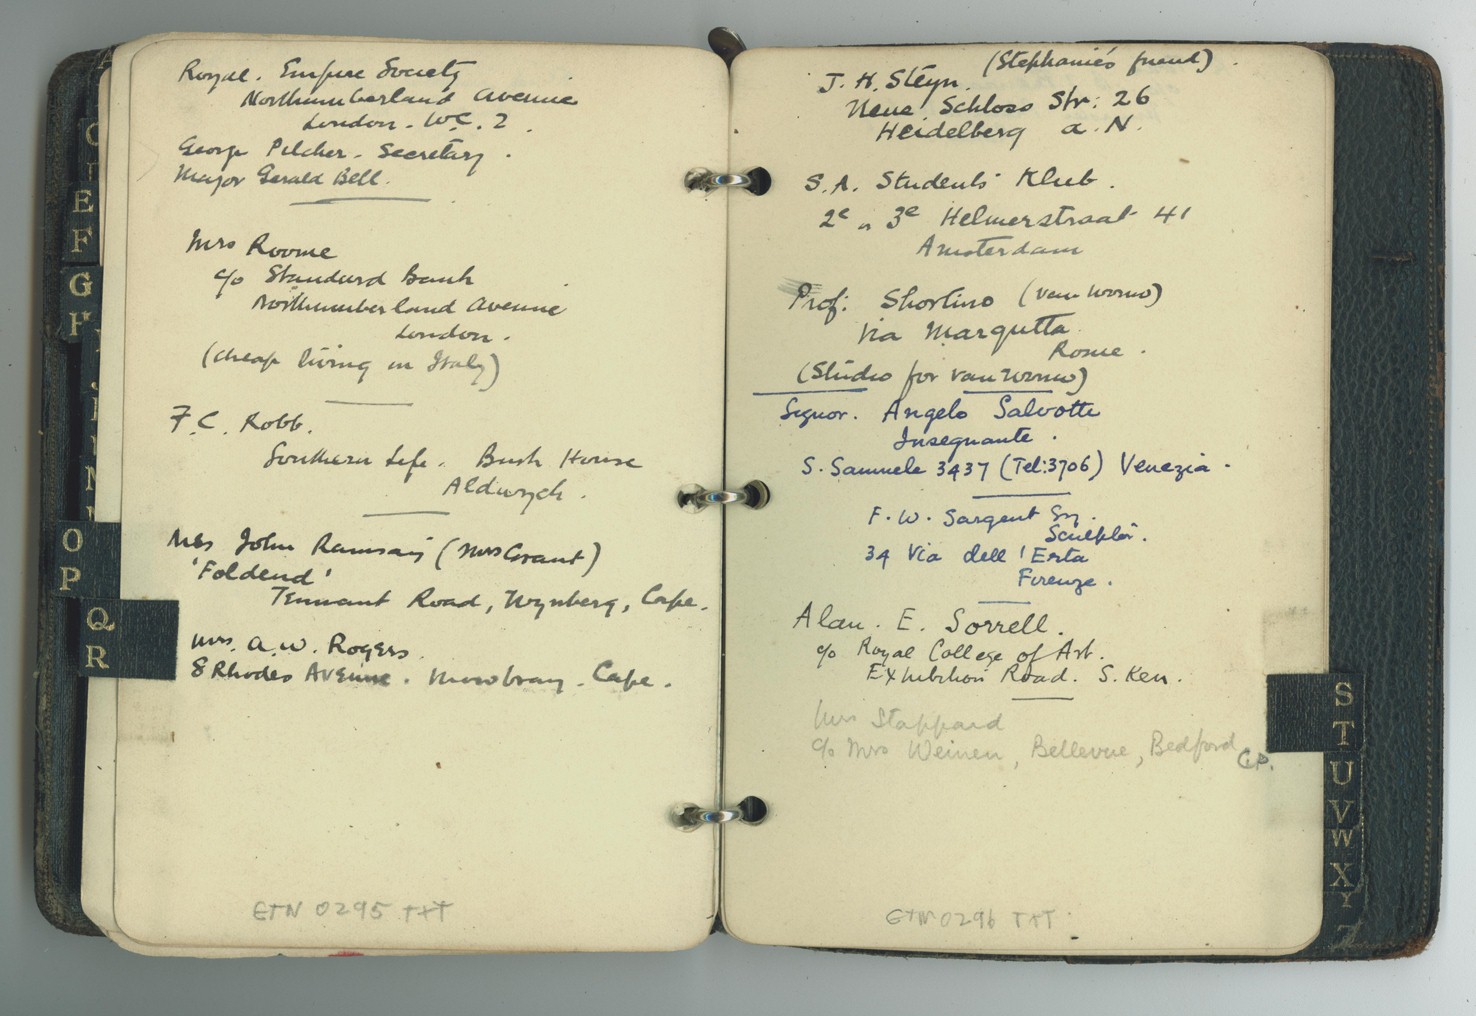 Royal. Empire Society
Northumberland Avenue
London. W.C. 2.
George Pilcher. Secretary.
Major Gerald Bell.
Mrs Roome
c/o Standard Bank
Northumberland Avenue
London.
(cheap living in Italy)
F.C. Robb.
Southern Life. Bush House
Aldwych.
Mrs John Ramsay (Mrs Grant)
'Foldend'
Tennant Road, Wynberg, Cape.
Mrs. A.W. Rogers.
8 Rhodes Avenue. Mowbray. Cape.
ETN 0295 TXT
(Stephanie's friend).
J. H. Steyn.
Neue Schloss Str: 26
Heidelberg a.N.
S.A. Students' Klub.
2e 3e Helmerstraat 41
Amsterdam
Prof: (van Wouw)
Via Margutta
Rome.
(Studio for van Wouw)
Signor. Angelo Salvotti
Insegnante.
S. Samuele 3437 (Tel: 3706) Venezia.
F. W. Sargent Esq.
Sculptor.
34 Via dell' Erta
Firenze.
Alan. E. Sorrell.
c/o Royal College of Art.
Exhibition Road. S. Ken.
Mrs Stappard
c/o Mrs Weinen, Bellevue, Bedford
C.P.
ETN 0296 TXT
O
P
Q
R
E
F
G
H
S
T
U
V
W
X
Y
Z